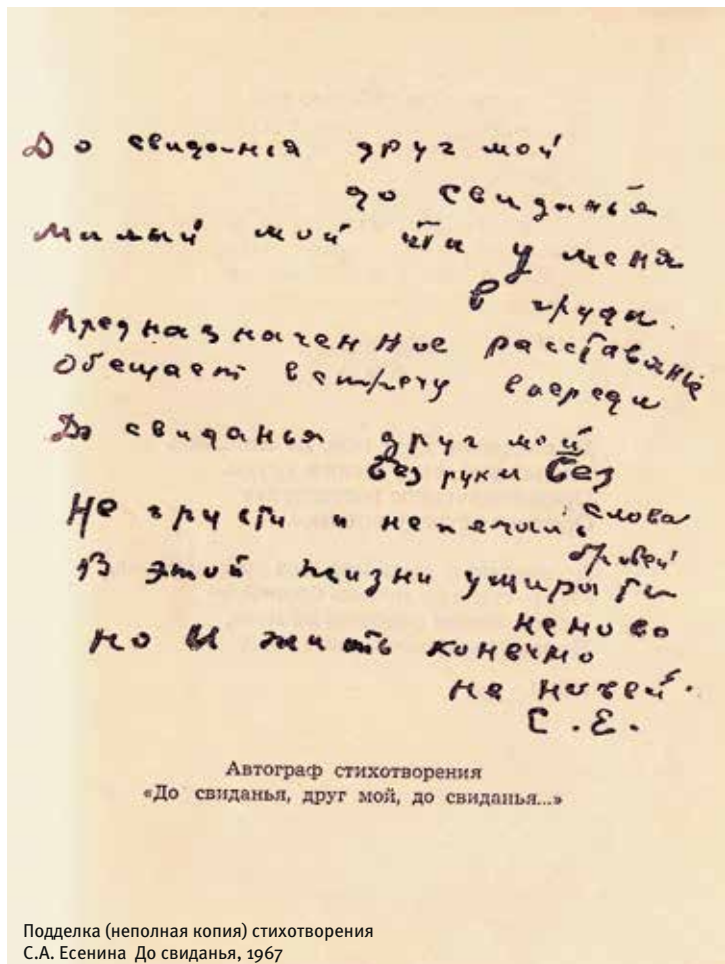 До свиданья друг мой
до свиданья
Милый мой ты у меня
в груди.
Предназначенное расставанье
Обещает встречу впереди
До свиданья друг мой
без руки без
слова
Не грусти и не печаль
бровей
В этой жизни умирать
не ново
но и жить конечно
не новей.
С. Е.
Автограф стихотворения
«До свиданья, друг мой, до свиданья...»
Подделка (неполная копия) стихотворения
С.А. Есенина До свиданья, 1967